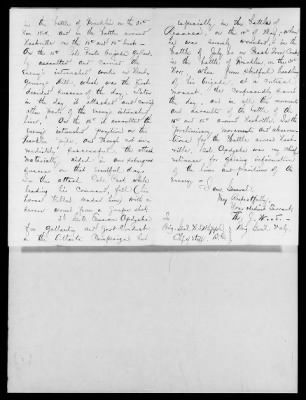 in the battle of Franklin on the 30th
Nov. 1864, and in the battle around
Nashville on the 15th and 16th
On the 15th, Col. Post's brigade gallantly
by assaulted and carried the
enemy's intrenched works on Montgomery
Hill, which was the first
decided success of the day. Later
in the day it attacked and carried
other parts of the enemy's intrenched
lines. On the 16th it assaulted the
enemy's intrenched position on the
Franklin pike, and though not immediately
successful, the attack
materially aided in our subsequent
success on that eventful day.
In this attack Col. Post while
leading his command, fell (his
horse killed under him) with a
severe wound from a grape shot
Col. Emerson Opdycke
for gallantry and good conduct
in the Atlanta Campaign and
especially, in the battles of
Resaca, on the 14th of May, where
he was severely wounded, in the
battle of July 20 on Peach Tree Creek,
in the battle of Franklin on the 30th
Nov. when from skilful handling
of his brigade, at a critical
moment, he
the day, and in all the movements
and assaults of the battle of the
15th and 16th around Nashville. In the
preliminary movements and observations
for the battle around Nashville,
Col. Opdycke was my chief
reliance for gaining information
of the lines and positions of the
enemy.
I am General:
Very Respectfully,
Your Obedient Servant,
Th. J. Wood
Brig. Genl. Vols.
To
Brig. Genl. W. D. Whipple
Chf. of Staff